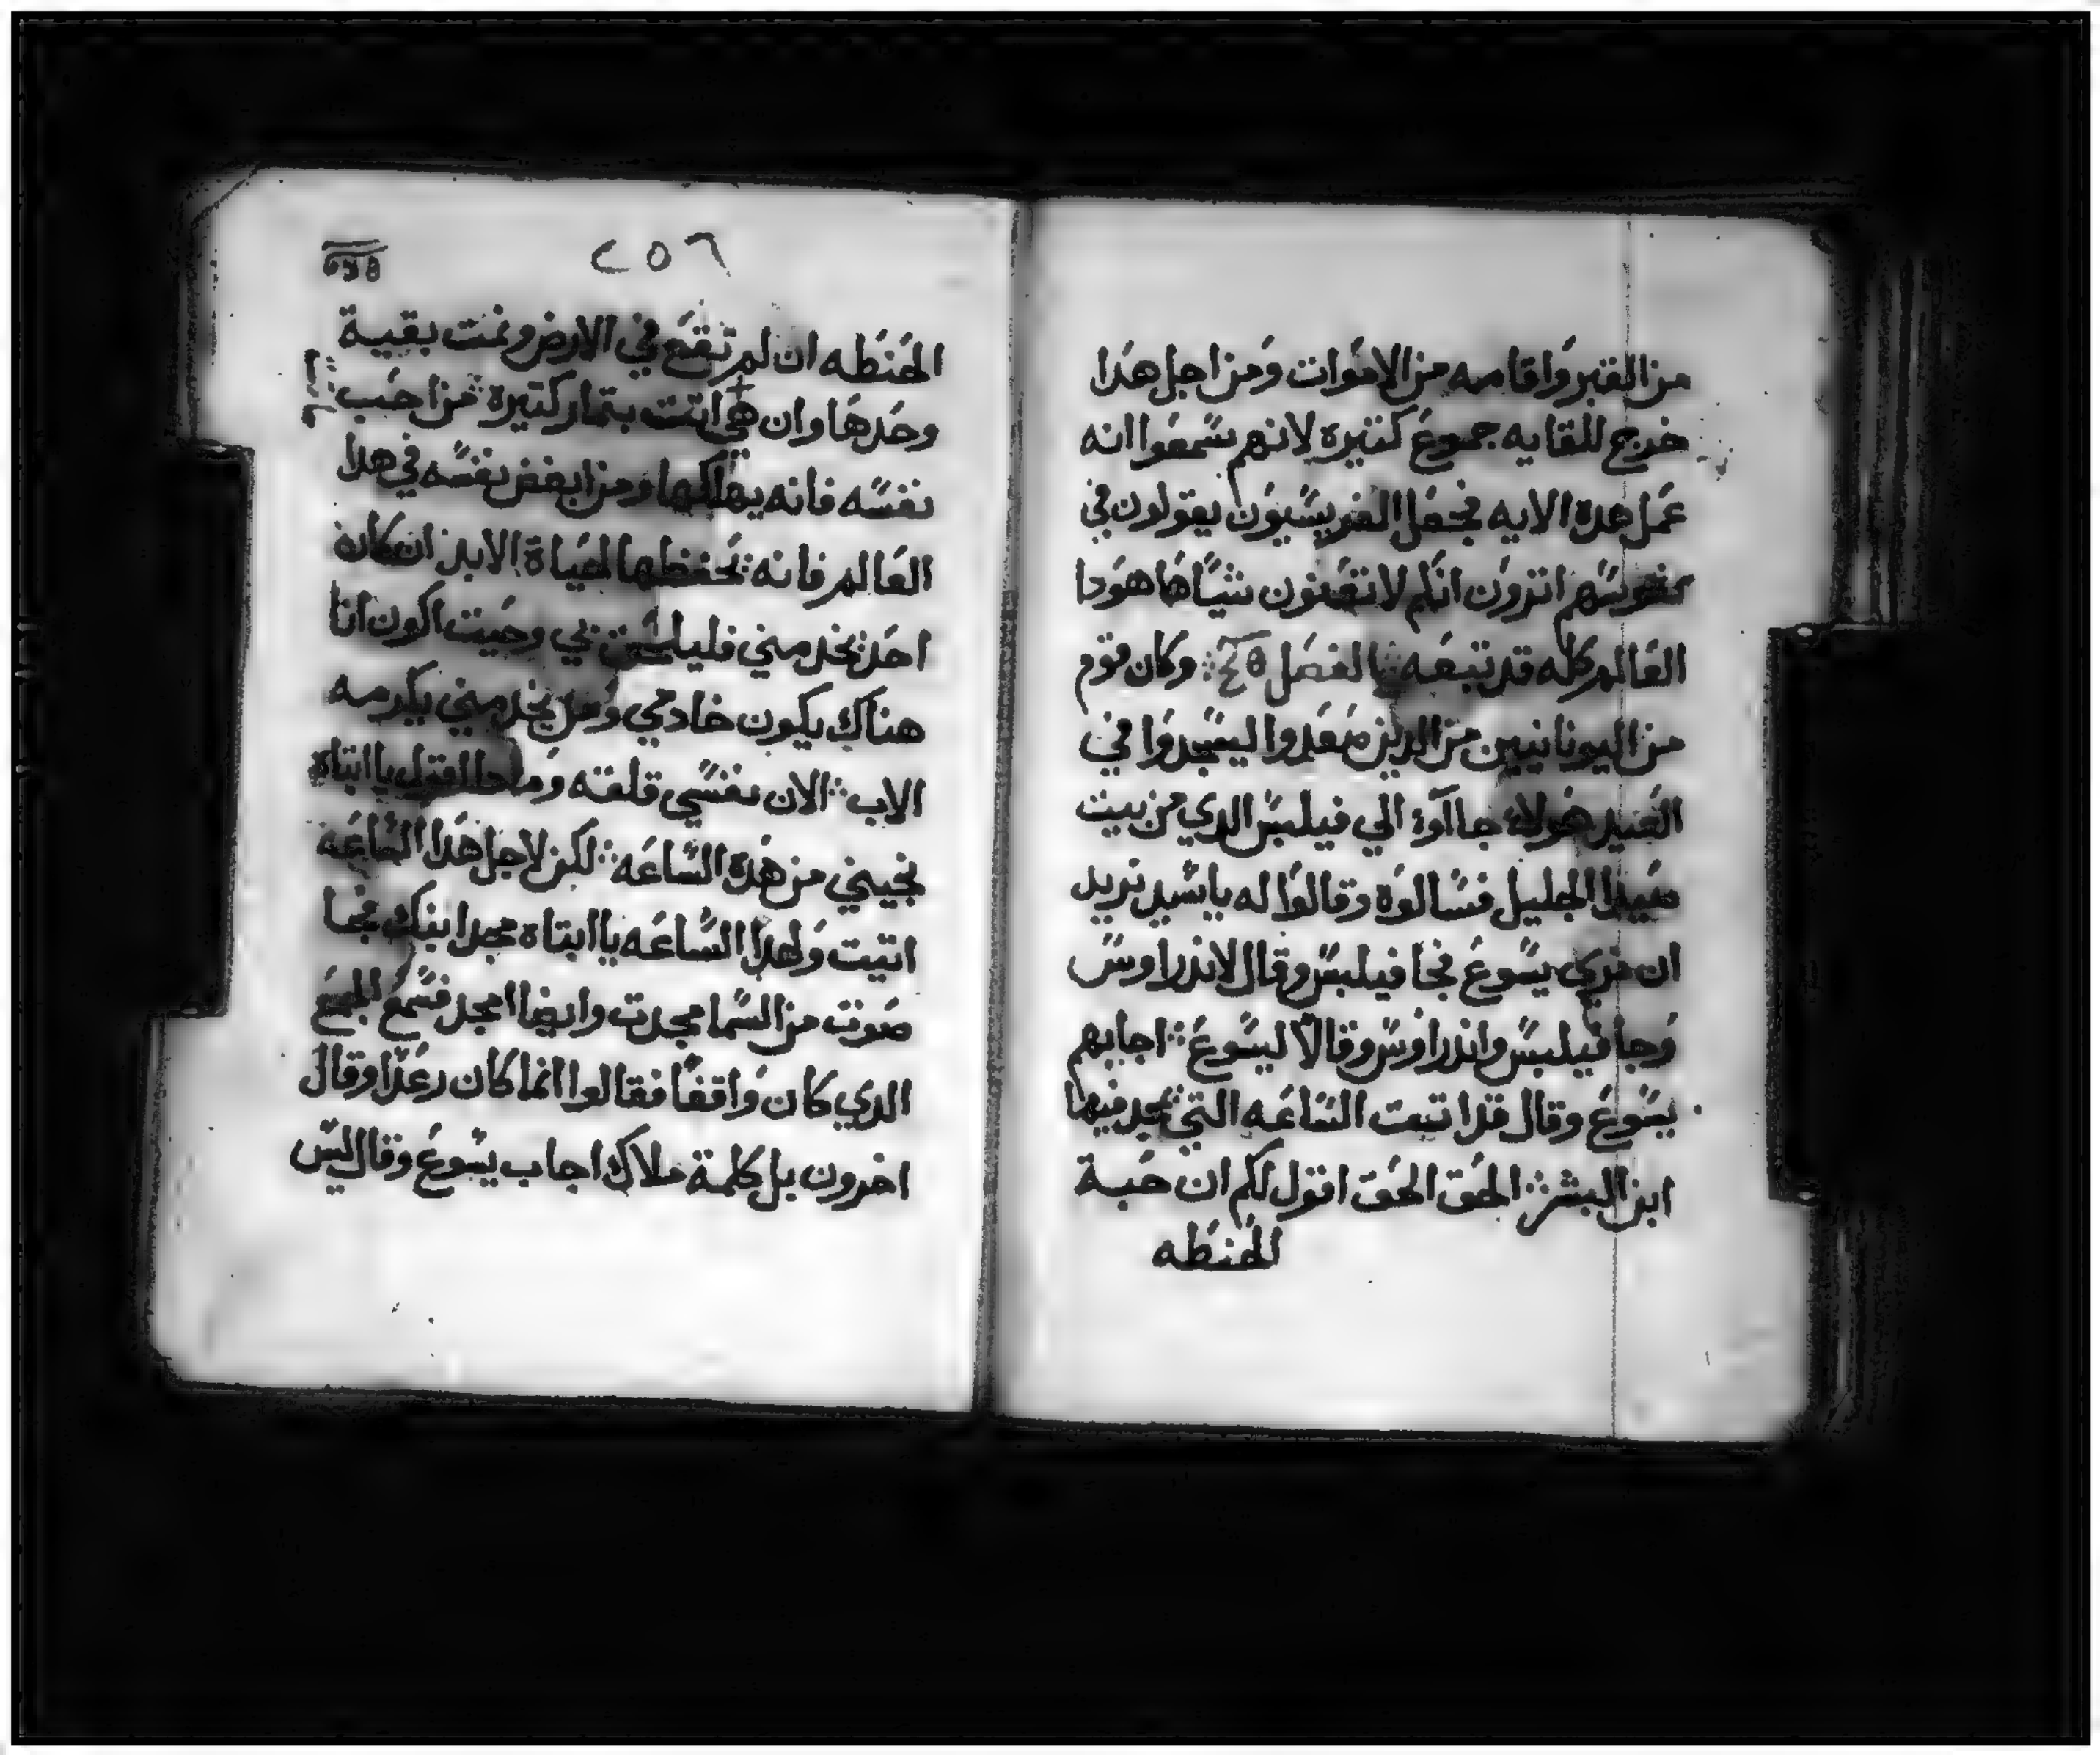 من القبر واقامه من الاموات ومن اجل هدا
خرج للقايه جموع كتيره لانهم سمعوا انه
عمل هده الايه فجعل الفريسيون يقولون في
نفوسهم اترون انكم لا تغنون شياً ها هودا
العالم كله قد تبعه الفصل وكان قوم
من اليونانيين من الدين صعدوا ليسجدوا في
العيد هولاء جاآوا الي فيلبس الدي من بيت
صيدا الجليل فسالوه وقالوا له يا سيد نريد
ان نري يسوع فجا فيلبس وقال لاندراوس
وجا فيلبس واندراوس وقالا ليسوع اجابهم
يسوع وقال قد اتيت الساعه التي يمجد فيها
ابن البشر الحق الحق اقول لكم ان حبة
الحنطه
٢٥٦
الحنطه ان لم تقع في الارض وتمت بقية
وحدها وان هي اتت بتمار كتيرة من احب
نفسه فانه يهلكها ومن ابغض نفسه في هدا
العالم فانه يحفظها لحياة الابد ان كان
احد يخدمني فليلحق بي وحيت اكون انا
هناك يكون خادمي ومن يخدمني يكرمه
الاب الان نفسي قلقه وماحا اقول يا ابتاه
نجيني من هده الساعه لكن لاجل هدا الساعه
اتيت ولهدا الساعه يا ابتاه مجد ابنك فجا
صوت من السما مجدت وايضا امجد فسمع الجمع
الدي كان واقفاً فقالوا انما كان رعدا وقال
اخرون بل كلمة ملاك اجاب يسوع وقال ليس